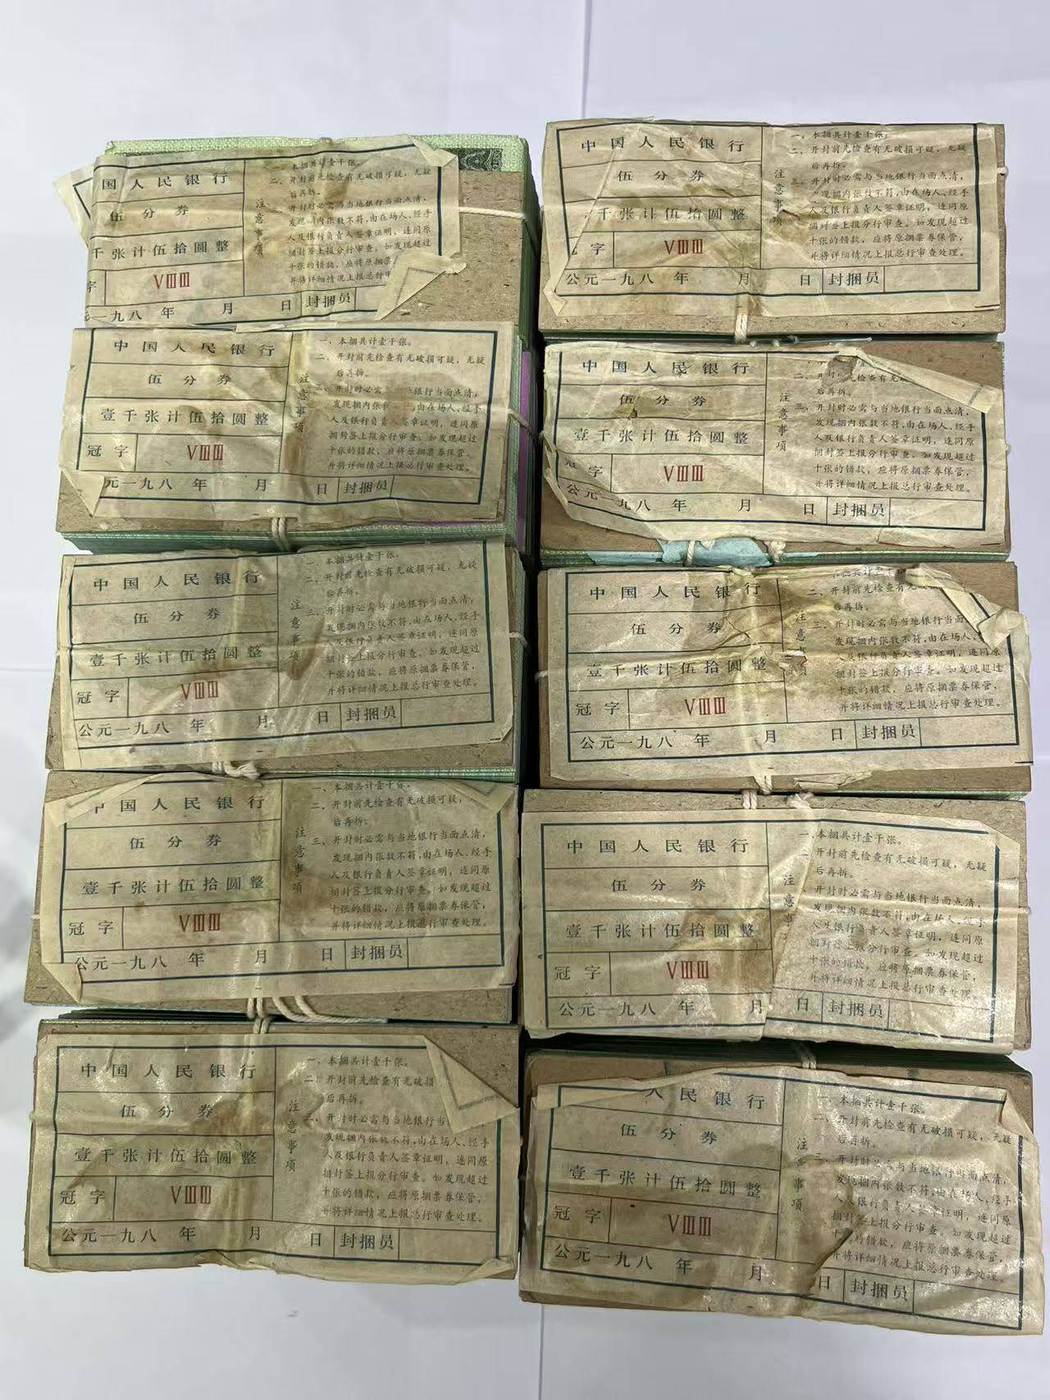 国人民银行
伍分券
千张计伍拾圆整
字 VⅢⅢ
一九八 年 月 日 封捆员
注意事项
一、本捆共计壹千张。
二、开封前先检查有无破损可疑，无疑
后再拆。
开封时必需与当地银行当面点清，
发现捆内张数不符，由在场人、经手
人及银行负责人签章证明，连同原
捆封签上报分行审查。如发现超过
十张的错款，应将原捆票
并将详细情况上报总行
中国人民银行
伍分券
壹千张计伍拾圆整
冠字 VⅢⅢ
元一九八 年 月 日 封捆员
注意事项
一、本捆共计壹千张。
二、开封前先检查有无破损可疑，无疑
后再拆。
三、开封时必需 银行当面点清，
发现捆内张数不符，由在场人、经手
人及银行负责人签章证明，连同原
捆封签上报分行审查。如发现超过
十张的错款，应将原捆票券保管，
并将详细情况上报总行审查处理。
中国人民银行
伍分券
壹千张计伍拾圆整
冠字 VⅢⅢ
公元一九八 年 月 日 封捆员
注意事项
一、本捆共计壹千张。
二、开封前先检查有无破损可疑，无疑
后再拆。
三、开封时必需与当地银行当面点清，
发现捆内张数不符，由在场人、经手
人及银行负责人签章证明，连同原
捆封签上报分行审查。如发现超过
十张的错款，应将原捆票券保管，
并将详细情况上报总行审查处理。
中国人民银行
伍分券
壹千张计伍拾圆整
冠字 VⅢⅢ
公元一九八 年 月 日 封捆员
注意事项
一、本捆共计壹千张。
二、开封前先检查有无破损可疑，
后再拆。
三、开封时必需与当地银行当面点清，
发现捆内张数不符，由在场人、经手
人及银行负责人签章证明，连同原
捆封签上报分行审查。如发现超过
十张的错款，应将原捆票券保管，
并将详细情况上报总行审查处理。
中国人民银行
伍分券
壹千张计伍拾圆整
冠字 VⅢⅢ
公元一九八 年 月 日 封捆员
注意事项
一、本捆共计壹千张。
二、开封前先检查有无破损
后再拆。
三、开封时必需与当地银行当
发现捆内张数不符，由在场人、经手
人及银行负责人签章证明，连同原
捆封签上报分行审查。如发现超过
十张的错款，应将原捆票券保管，
并将详细情况上报总行审查处理。
中国人民银行
伍分券
千张计伍拾圆整
冠字 VⅢⅢ
公元一九八 年 月 日 封捆员
注意事项
一、本捆共计壹千张。
二、开封前先检查有无破损可疑，无疑
后再拆。
三、开封时必需与当地银行当面点清，
发现捆内张数不符，由在场人、经手
人及银行负责人签章证明，连同原
捆封签上报分行审查。如发现超过
十张的错款，应将原捆票券保管，
并将详细情况上报总行审查处理。
中国人民银行
伍分券
壹千张计伍拾圆整
字 VⅢⅢ
公元一九八 年 月 日 封捆员
注意事项
二、开封前先检查有无破损
后再拆。
三、开封时必需与当地银行当面点清，
发现捆内张数不符，由在场人、经手
人及银行负责人签章证明，连同原
捆封签上报分行审查。如发现超过
十张的错款，应将原捆票券保管，
并将详细情况上报总行审查处理。
中国人民银行
伍分券
壹千张计伍拾圆整
冠字 VⅢⅢ
公元一九八 年 月 日 封捆员
注意事项
一、本捆共计壹千
二、开封前先检查有无破损可
后再拆。
三、开封时必需与当地银行当面点清，
发现捆内张数不符，由在场人、经手
人及银行负责人签章证明，连同原
捆封签上报分行审查。如发现超过
十张的错款，应将原捆票券保管，
并将详细情况上报总行审查处理。
中国人民银行
伍分券
壹千张计伍拾圆整
冠字 VⅢⅢ
公元一九八 年 月 日 封捆员
注意事项
一、本捆共计壹千张。
二、开封前先检查有无破损可疑，无疑
后再拆。
开封时必需与当地银行当面点清，
发现捆内张数不符，由在场人、经手
人及银行负责人签章证明，连同原
捆封签上报分行审查。如发现超过
十张的错款，应将原捆票券保管，
并将详细情况上报总行审查处理。
人民银行
伍分券
壹千张计伍拾圆整
冠字 VⅢⅢ
公元一九八 年 月 日 封捆员
注意事项
一、本捆共计壹千张。
二、开封前先检查有无破损可疑，无疑
后再拆。
三、开封时必需与当地银行当面点清，
发现捆内张数不符，由在场人、经手
人及银行负责人签章证明，连同原
捆封签上报分行审查。如发现超过
十张的错款，应将原捆票券保管，
并将详细情况上报总行审查处理。